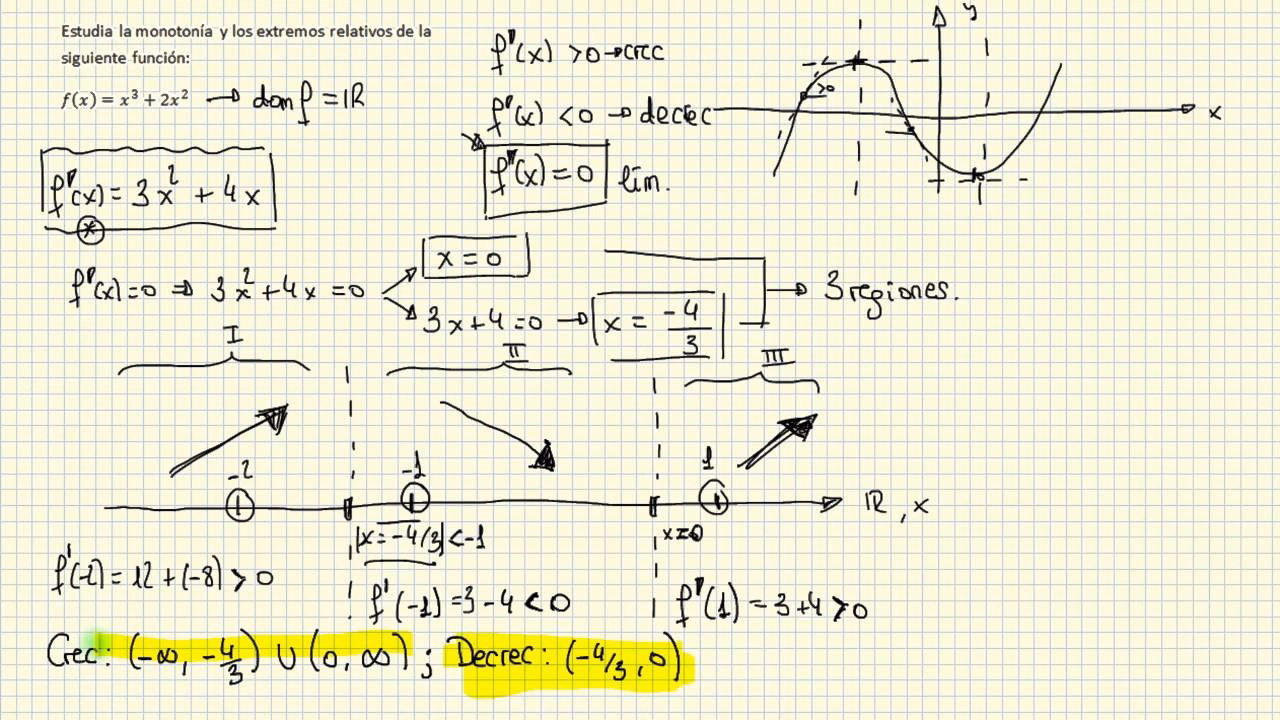 Estudia la monotonía y los extremos relativos de la
siguiente función:
f(x) = x³ + 2x² → dom f = IR
f'(x) = 3x² + 4x
*
f'(x) > 0 → crec
f'(x) < 0 → decrec
f'(x) = 0 lim.
y
x
>0
f'(x) = 0 ⇒ 3x² + 4x = 0
x = 0
3x + 4 = 0 → x = -4/3
→ 3 regiones.
I II III
-2 -1 1
IR, x
x = -4/3 < -1
x = 0
f'(-2) = 12 + (-8) > 0
f'(-1) = 3 - 4 < 0
f'(1) = 3 + 4 > 0
Crec: (-∞, -4/3) ∪ (0, ∞) ; Decrec: (-4/3, 0)